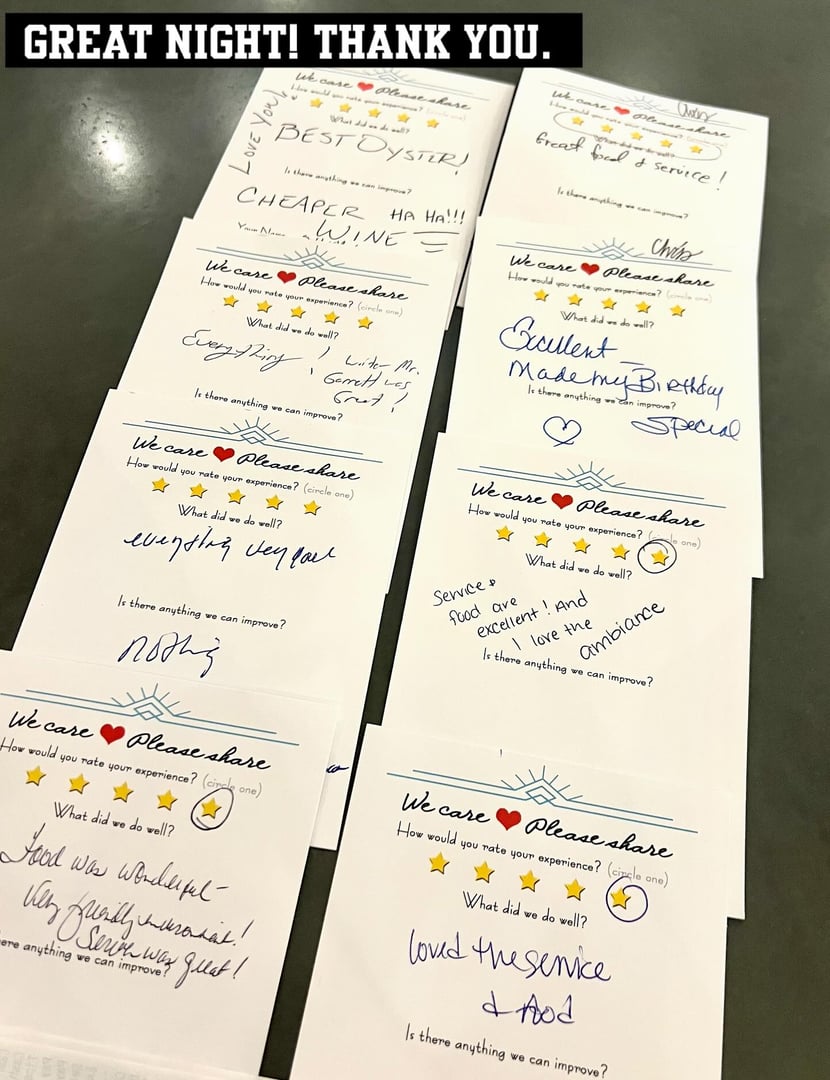 GREAT NIGHT! THANK YOU.
We care Please share
How would you rate your experience? (circle one)
LOVE YOU!
What did we do well?
BEST OYSTER!
Is there anything we can improve?
CHEAPER HA HA!!!
WINE
Your Name
We care Please share
How would you rate your experience? (circle one)
What did we do well?
Everything! Waiter Mr.
Garrett was
Great!
Is there anything we can improve?
We care Please share
How would you rate your experience? (circle one)
What did we do well?
everything very good
Is there anything we can improve?
nothing
We care Please share
How would you rate your experience? (circle one)
What did we do well?
Food was wonderful -
Very friendly environment!
Service was great!
ere anything we can improve?
Chris
We care Please share
How would you rate your experience? (circle one)
What did we do well?
Great food & service!
Is there anything we can improve?
Chris
We care Please share
How would you rate your experience? (circle one)
What did we do well?
Excellent -
Made my Birthday
Is there anything we can improve?
Special
We care Please share
How would you rate your experience? (circle one)
What did we do well?
Service &
food are
excellent! And
I love the ambiance
Is there anything we can improve?
We care Please share
How would you rate your experience? (circle one)
What did we do well?
loved the service
& food
Is there anything we can improve?